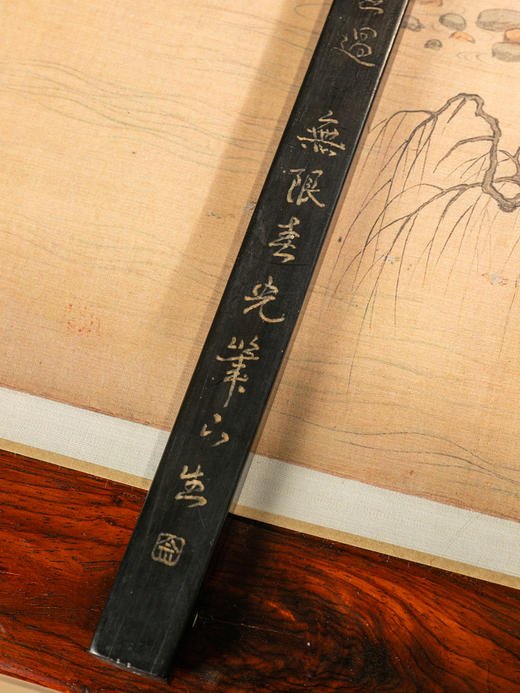 過無限春光筆下生